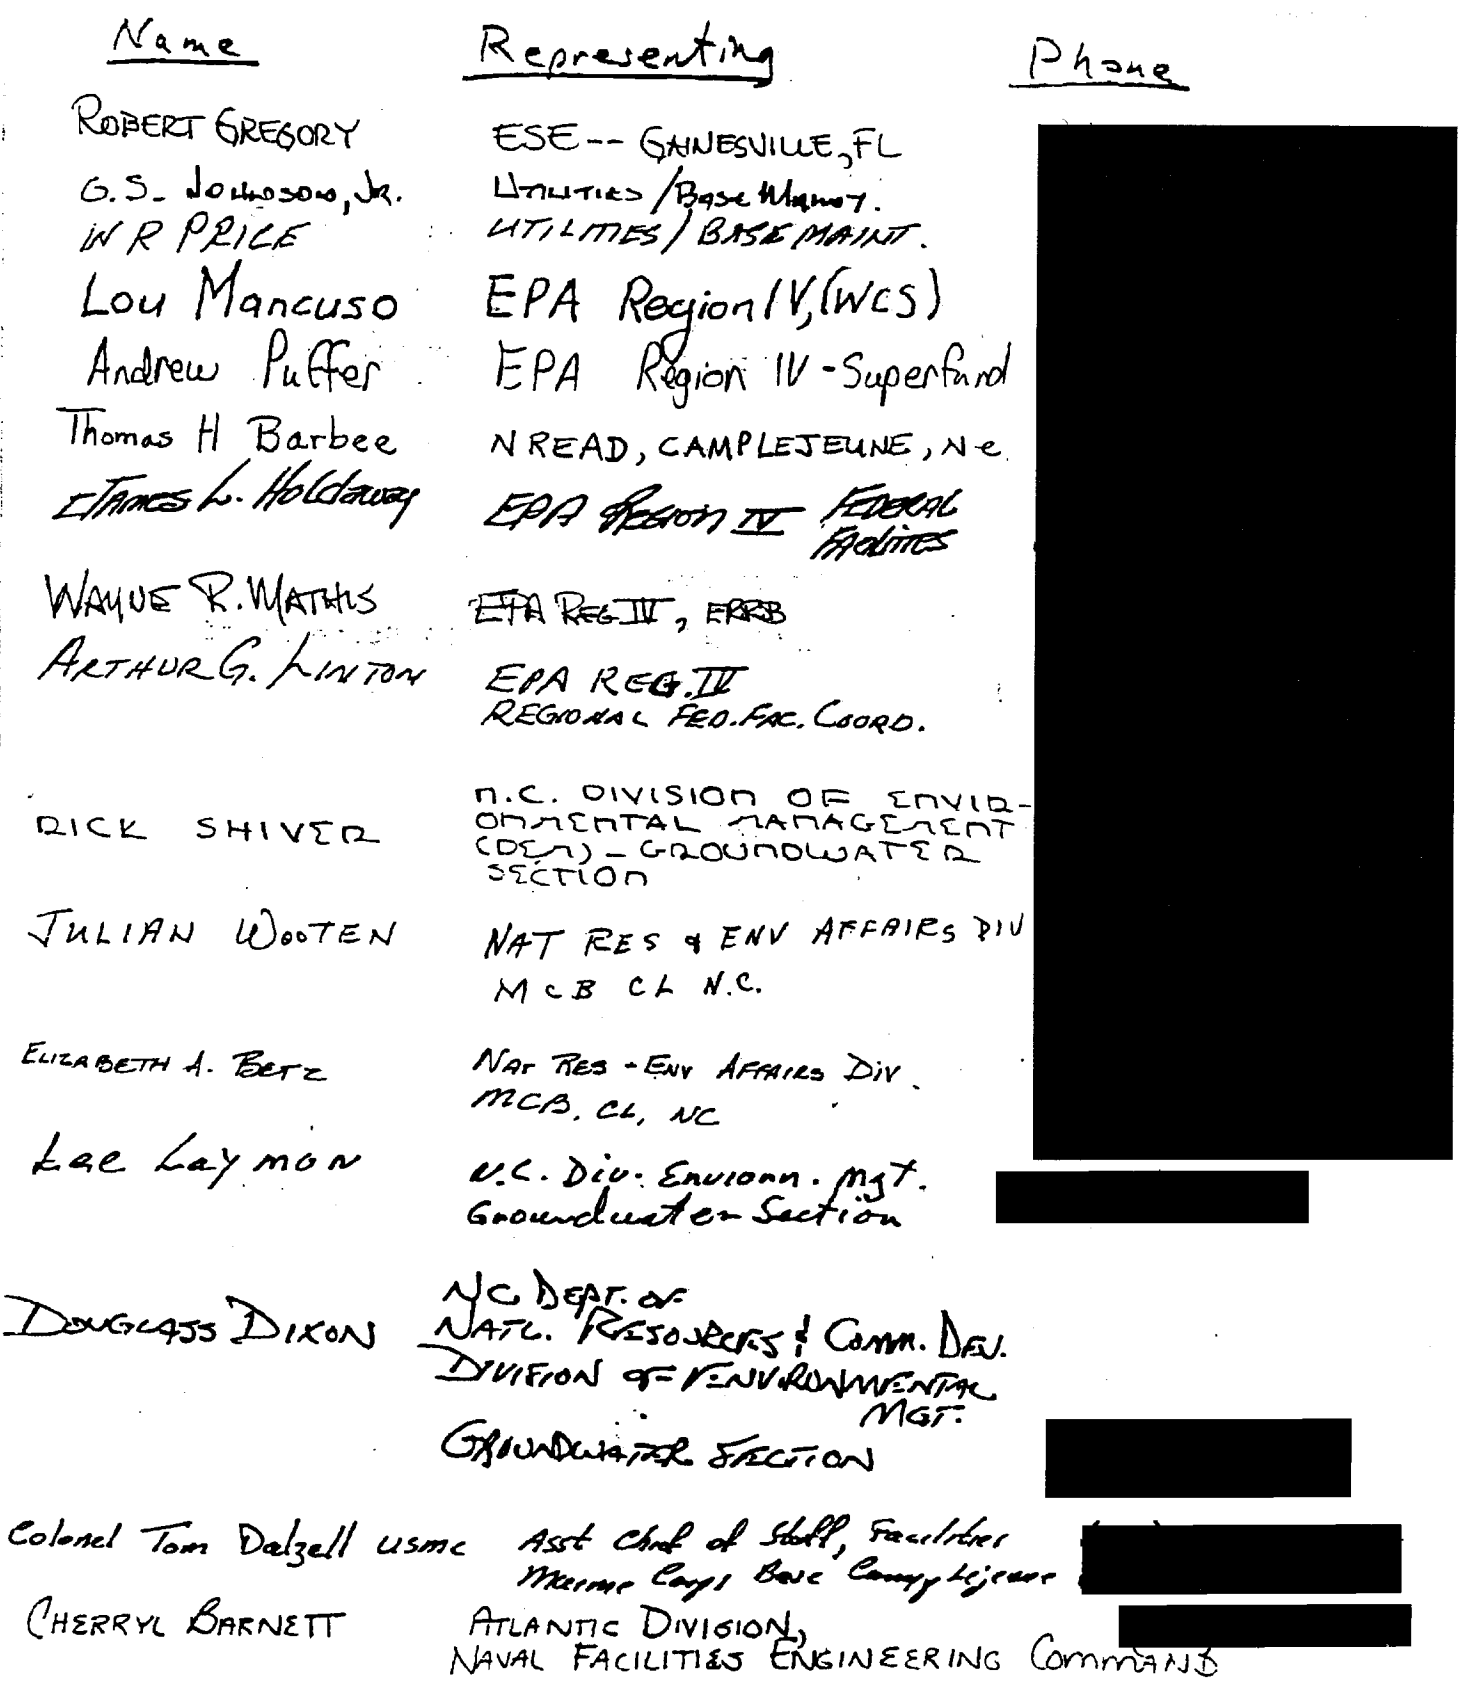 Name Representing Phone
ROBERT GREGORY ESE-- GAINESVILLE, FL
G.S. JOHNSON, JR. UTILITIES/Base Maint.
W R PRICE UTILITIES/BASE MAINT.
Lou Mancuso EPA Region IV, (WCS)
Andrew Puffer EPA Region IV - Superfund
Thomas H Barbee NREAD, CAMP LEJEUNE, NC
JAMES L. Holdaway EPA Region IV FEDERAL
FAcilities
WAYNE R. MATHIS EPA REG IV, ERRB
ARTHUR G. LINTON EPA REG. IV
REGIONAL FED. FAC. COORD.
RICK SHIVER N.C. DIVISION OF ENVIR-
ONMENTAL MANAGEMENT
(DEM) - GROUNDWATER
SECTION
JULIAN WOOTEN NAT RES & ENV AFFAIRS DIV
McB CL N.C.
ELIZABETH A. BETZ NAT RES - ENV AFFAIRS DIV.
MCB, CL, NC
Lee Laymon N.C. Div. Environ. Mgt.
Groundwater Section
DOUGLASS DIXON NC DEPT. OF
NATL. RESOURCES & COMM. DEV.
DIVISION OF ENVIRONMENTAL
MGT.
GROUNDWATER SECTION
Colonel Tom Dalzell USMC Asst Chief of Staff, Facilities
Marine Corps Base Camp Lejeune
CHERRYL BARNETT ATLANTIC DIVISION,
NAVAL FACILITIES ENGINEERING COMMAND